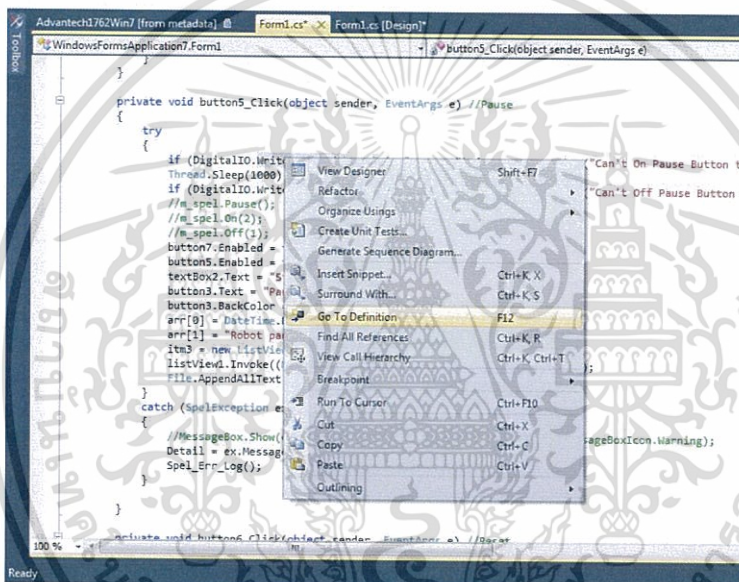 Advantech1762Win7 [from metadata]
Form1.cs*
Form1.cs [Design]*
Toolbox
WindowsFormsApplication7.Form1
button5_Click(object sender, EventArgs e)
}
}
private void button5_Click(object sender, EventArgs e) //Pause
{
try
{
if (DigitalIO.Write
"Can't On Pause Button t
Thread.Sleep(1000)
if (DigitalIO.Write
"Can't Off Pause Button
//m_spel.Pause();
//m_spel.On(2);
//m_spel.Off(1);
button7.Enabled =
button5.Enabled =
textBox2.Text = "S
button3.Text = "Pa
button3.BackColor
arr[0] = DateTime.
arr[1] = "Robot pa
itm3 = new ListVie
listView1.Invoke((
);
File.AppendAllText
}
catch (SpelException e
{
//MessageBox.Show(
sageBoxIcon.Warning);
Detail = ex.Messag
Spel_Err_Log();
}
}
private void button6_Click(object sender, EventArgs e) //Reset
View Designer Shift+F7
Refactor
Organize Usings
Create Unit Tests...
Generate Sequence Diagram...
Insert Snippet... Ctrl+K, X
Surround With... Ctrl+K, S
Go To Definition F12
Find All References Ctrl+K, R
View Call Hierarchy Ctrl+K, Ctrl+T
Breakpoint
Run To Cursor Ctrl+F10
Cut Ctrl+X
Copy Ctrl+C
Paste Ctrl+V
Outlining
100 %
Ready